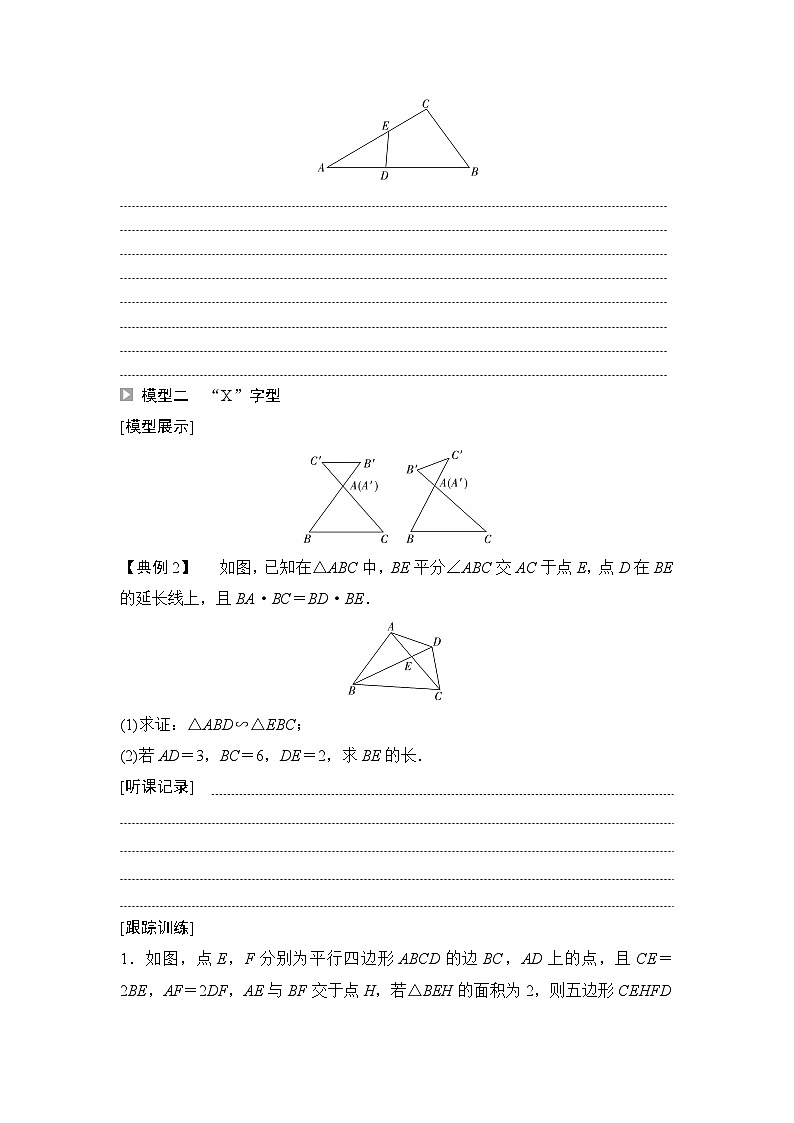 C
E
A
D
B
模型二 “X”字型
[模型展示]
C′ B′
A(A′)
B C
C′
B′
A(A′)
B C
【典例2】 如图,已知在△ABC中,BE平分∠ABC交AC于点E,点D在BE
的延长线上,且BA·BC=BD·BE.
A
D
E
B
C
(1)求证:△ABD∽△EBC;
(2)若AD=3,BC=6,DE=2,求BE的长.
[听课记录]
[跟踪训练]
1.如图,点E,F分别为平行四边形ABCD的边BC,AD上的点,且CE=
2BE,AF=2DF,AE与BF交于点H,若△BEH的面积为2,则五边形CEHFD